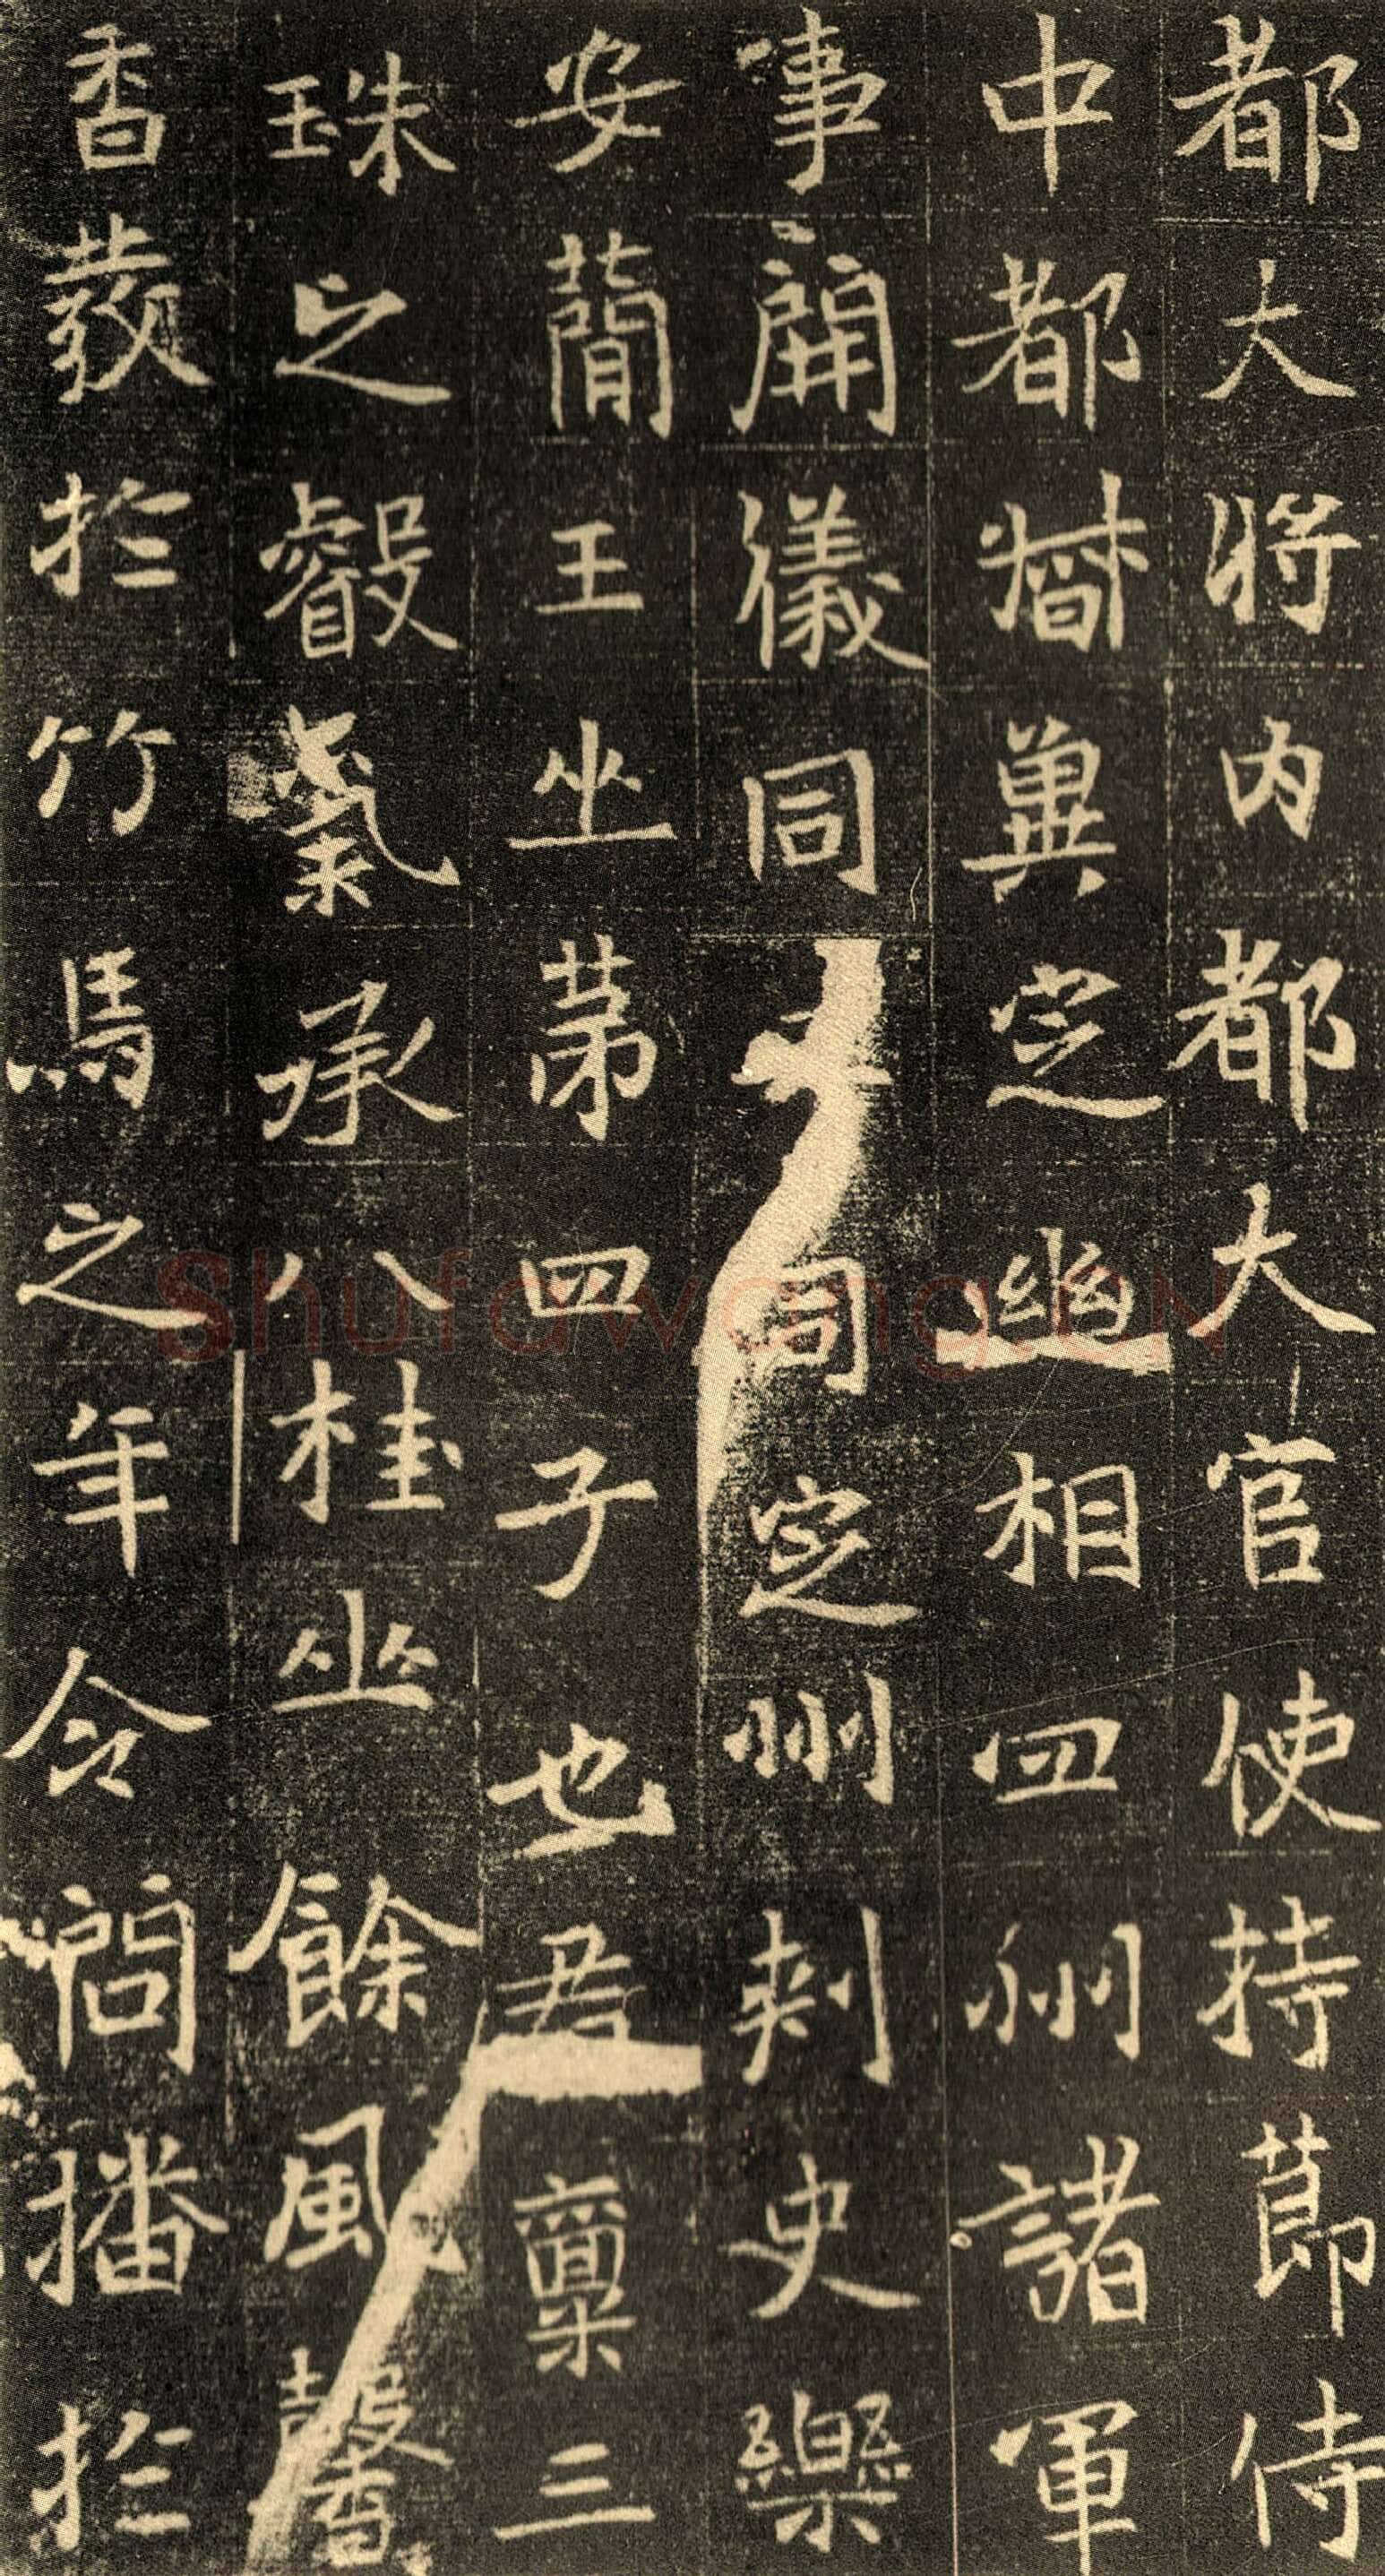 都大將內都大官使持節侍
中都督冀定幽相四州諸軍
事開儀同三司定州刺史樂
安簡王㞢第四子也君稟三
珠之叡氣承八桂㞢餘風馨
香發於竹馬之年令問播於
Shufawang.CN